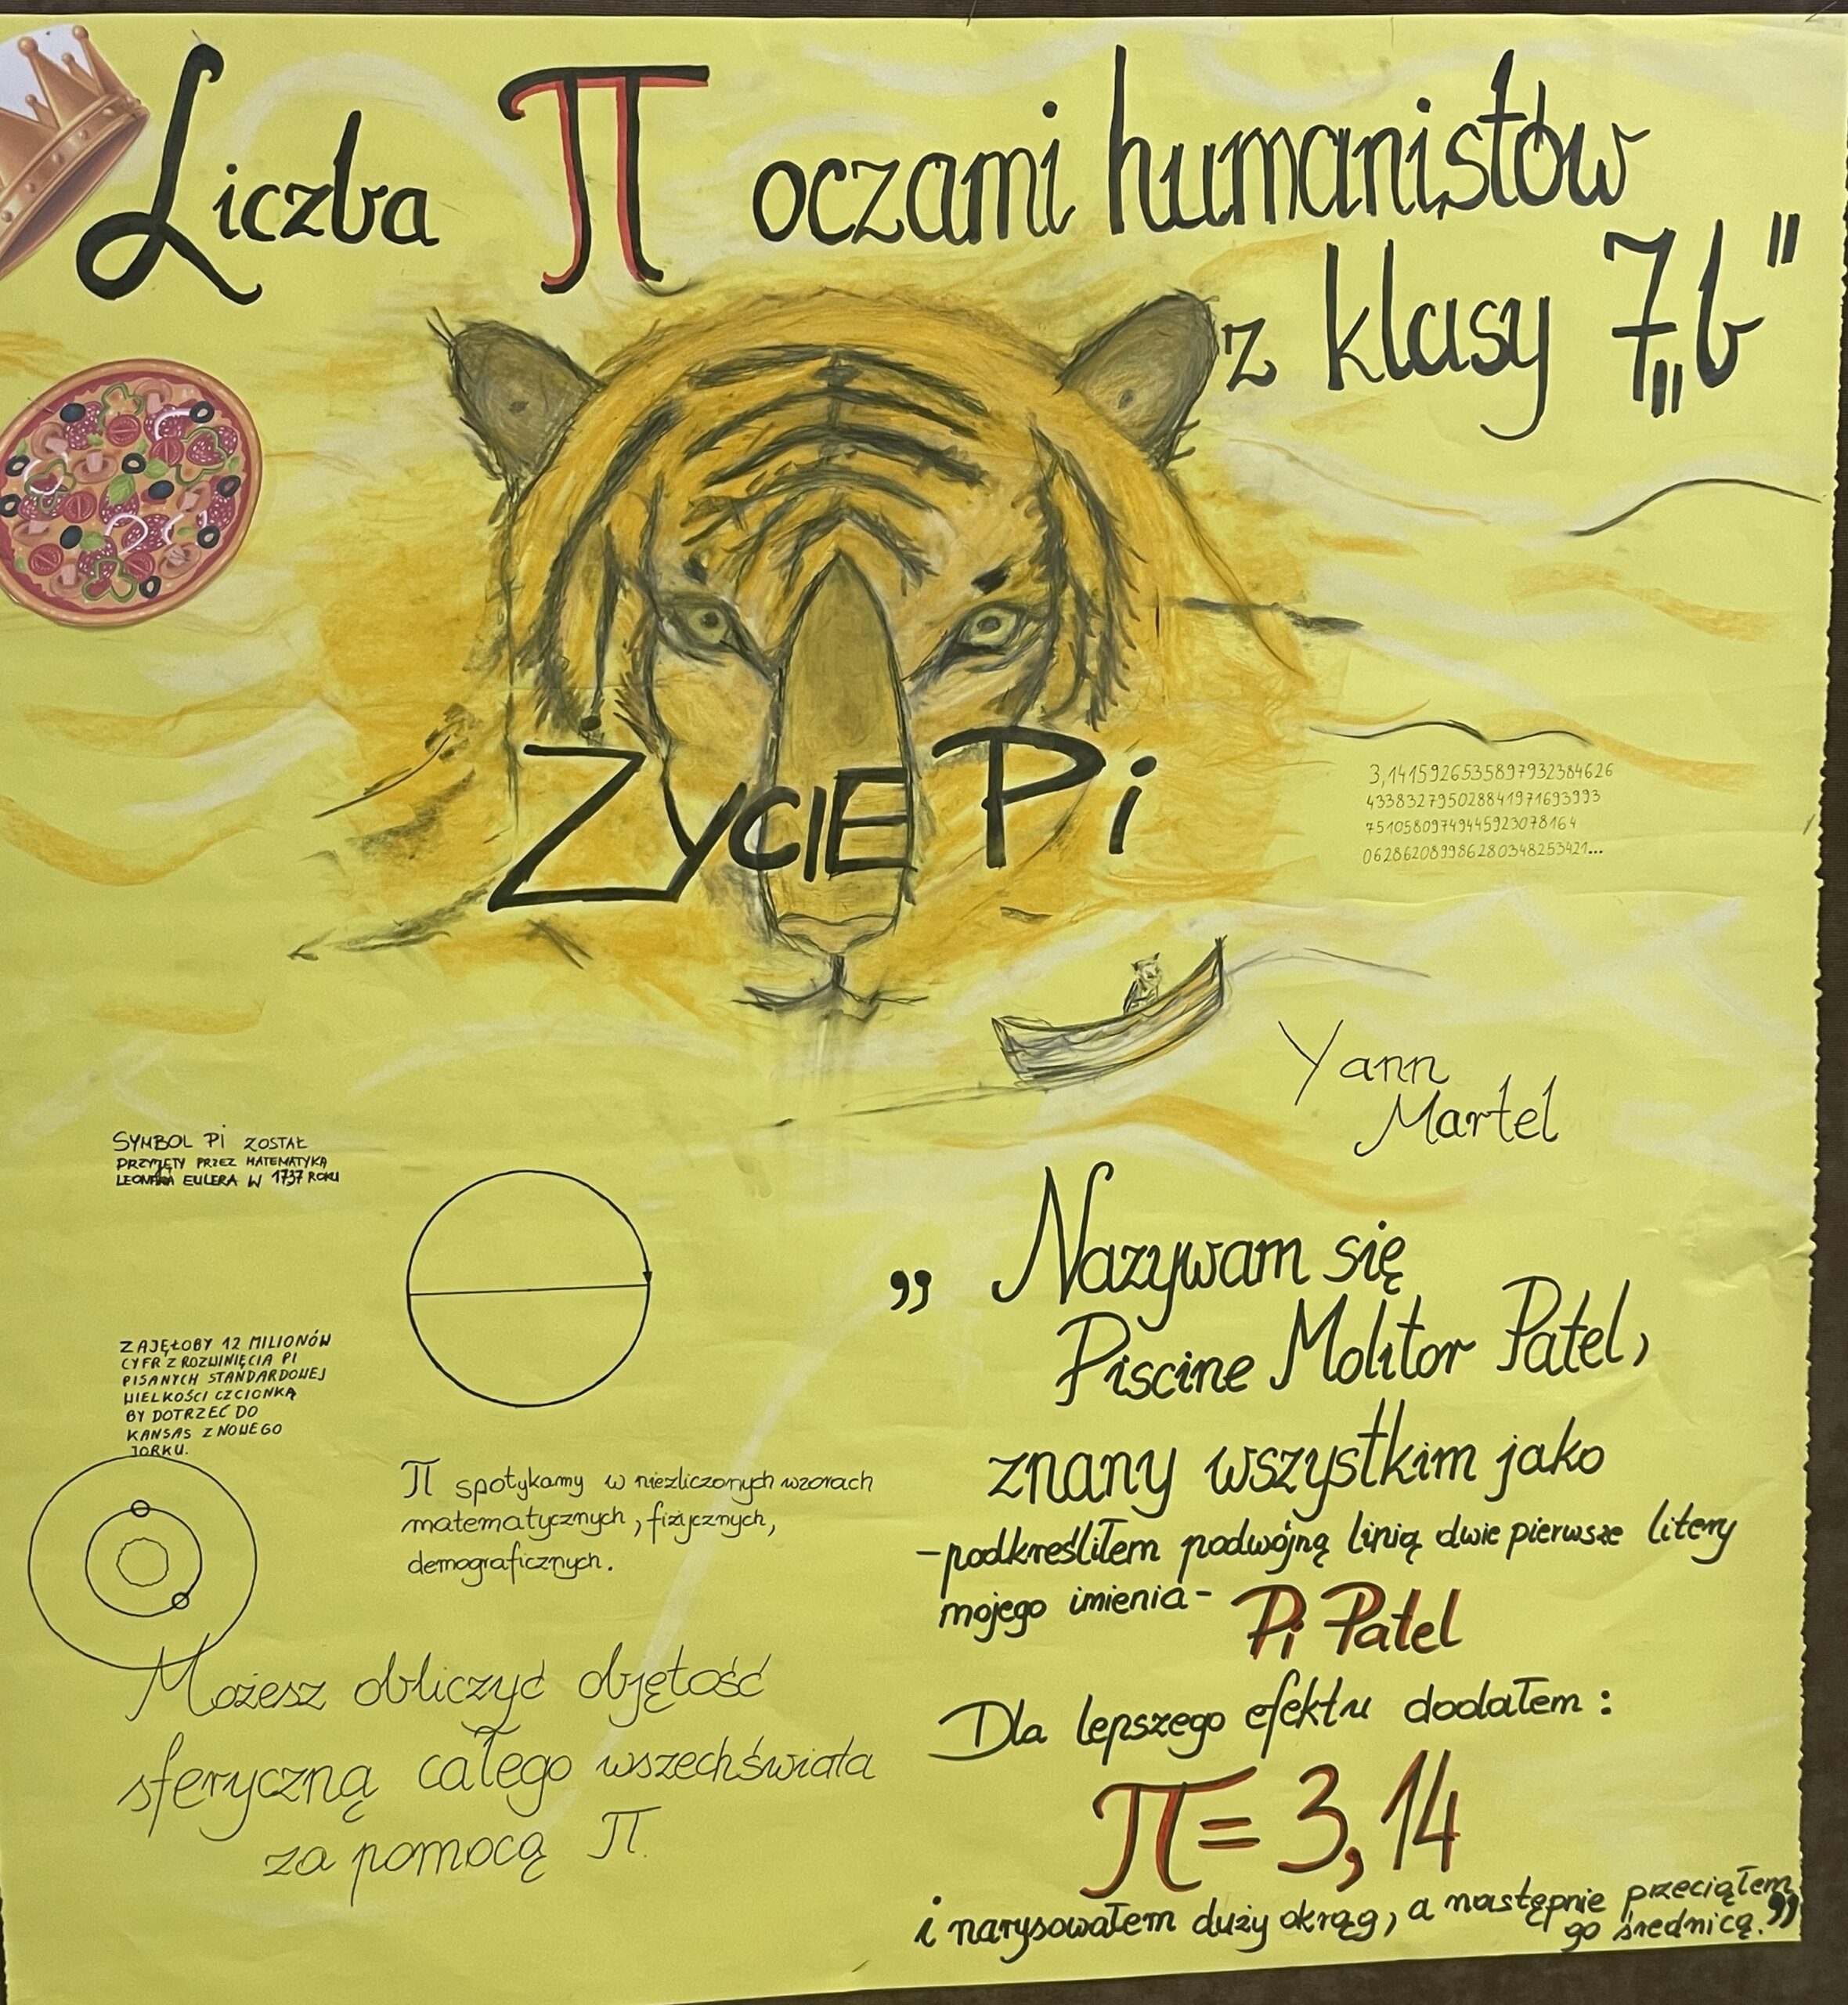 Liczba π oczami humanistów
z klasy 7„b"
ŻYCIE Pi
3,1415926535897932384626
4338327950288419716939 93
7510580974944592307 8164
06286208998628034825 3421...
Yann
Martel
SYMBOL Pi ZOSTAŁ
PRZYJĘTY PRZEZ MATEMATYKA
EULERA W 1737 ROKU
ZAJĘŁOBY 12 MILIONÓW
CYFR Z ROZWINIĘCIA PI
PISANYCH STANDARDOWEJ
WIELKOŚCI CZCIONKĄ
BY DOTRZEĆ DO
KANSAS Z NOWEGO
JORKU.
π spotykamy w niezliczonych wzorach
matematycznych, fizycznych,
demograficznych.
Możesz obliczyć objętość
sferyczną całego wszechświata
za pomocą π.
„ Nazywam się
Piscine Molitor Patel,
znany wszystkim jako
-podkreśliłem podwójną linią dwie pierwsze litery
mojego imienia- Pi Patel
Dla lepszego efektu dodałem:
π = 3,14
i narysowałem duży okrąg, a następnie przeciąłem
go średnicą.”